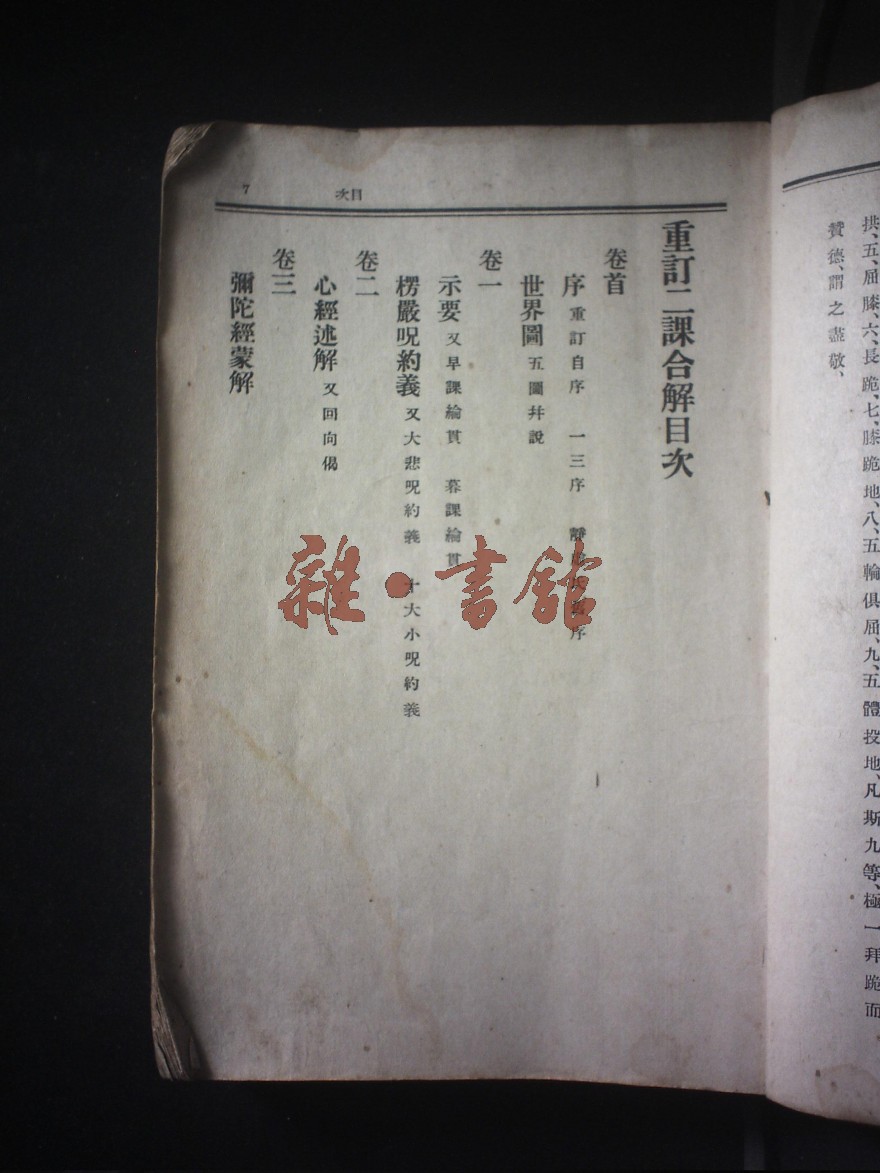 拱、五、屈膝、六、長跪、七、膝跪地、八、五輪俱屈、九、五體投地、凡斯九等、極一拜跪而
贊德、謂之盡敬、
目次
7
重訂二課合解目次
卷首
序 重訂自序 一三序 序
世界圖 五圖幷說
卷一
示要 又早課論貫 暮課論貫
楞嚴呪約義 又大悲呪約義 十大小呪約義
卷二
心經述解 又回向偈
卷三
彌陀經蒙解
雜·書館